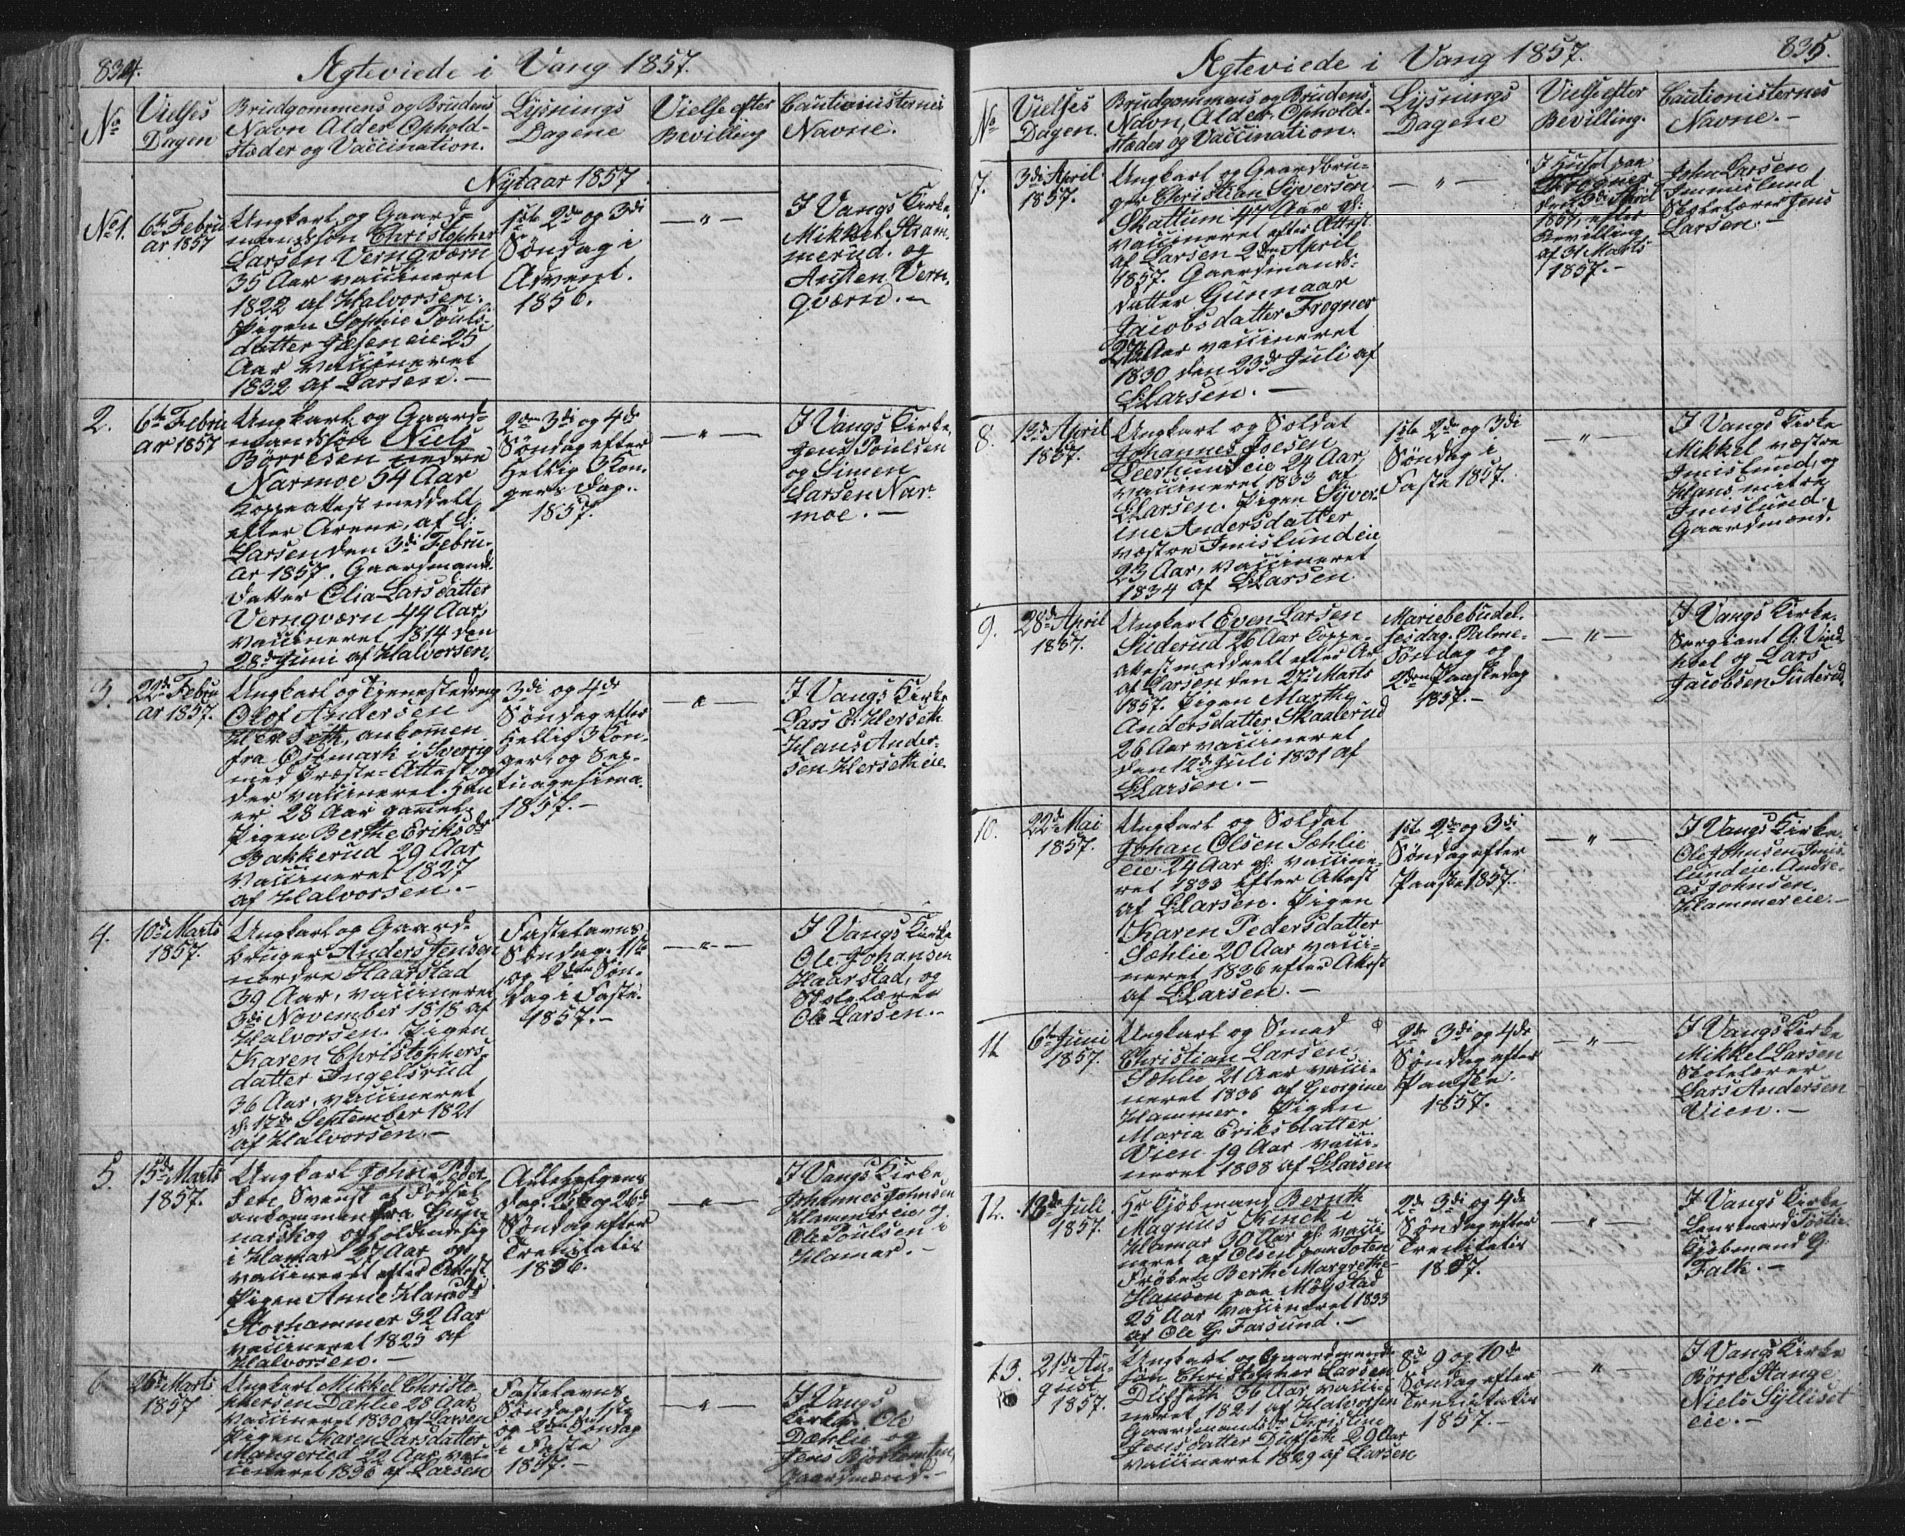 834.
Ægteviede i Vang 1857.
No
Vielses Dagen
Brudgommens og Brudens
Navn Alder, Ophold-
stæder og Vaccination.
Lysnings
Dagene
Vielse efter
Bevilling
Cautionisternes
Navne.
Nytaar 1857
No 1.
6te Febru
ar 1857
Ungkarl og Gaard-
mandssøn Christopher
Larsen Vernqværn
35 Aar vaccineret
1822 af Halvorsen.
Pigen Sophie Pouls-
datter 25
Aar vaccineret
1832 af Larsen. —
1ste 2den og 3di
Søndag i
Advent.
1856.
— " —
I Vangs Kirke,
Mikkel Stram-
merud. og
Austen Vern-
qværn. —
2.
6te Febru
ar 1857
Ungkarl og Gaard-
mandssøn Niels
Børresen nedre
Narmoe 54 Aar
Koppeattest meddeelt
efter Arene, af L:
Larsen den 3di Febru-
ar 1857. Gaardmands-
datter Olia Larsdatter
Vernqværn 44 Aar,
vaccineret 1814 den
28de Juni af Halvorsen.
2den 3di og 4de
Søndag efter
Hellig 3 Kon-
gers Dag.
1857.
— " —
I Vangs Kirke,
Jens Poulsen
og Simen
Larsen Nar-
moe. —
3.
22de Febru
ar 1857.
Ungkarl og Tjenestedreng
Olof Andersen
Herseth, ankommen
fra Østmark i Sverrig
med Præste-Attest, og
der vaccineret. Han
er 28 Aar gammel.
Pigen Berthe Eriksdr
Bakkerud 29 Aar
vaccineret 1827
af Halvorsen. —
3di og 4de
Søndag efter
Hellig 3 Kon-
ger, og Sep-
tuagesima.
1857. —
— " —
I Vangs Kirke
Lars E. Herseth
Hans Ander-
sen Hersetheie.
4.
10de Marts
1857.
Ungkarl og Gaard-
bruger Anders Jensen
nordre Haarstad
39 Aar, vaccineret
3di November 1818 af
Halvorsen. Pigen
Karen Christophers-
datter Ingelsrud
36 Aar, vaccineret
d. 17de September 1821
af Halvorsen. —
Fastelavns
Søndag. 1ste
og 2den Søn-
dag i Faste.
1857. —
— " —
I Vangs Kirke
Ole Johansen
Haarstad, og
Skolelærer
Ole Larsen. —
5.
15de Marts
1857.
Ungkarl John Peder-
sen, Svensk af Fødsel
ankommen fra Gun-
narskog opholdende sig
i Hamar 27 Aar og
vaccineret efter Attest
Pigen Anne Hansdr
Storhammer 32 Aar
vaccineret 1825 af
Halvorsen. —
Allehelgens
Dag. og 26de
Søndag efter
Trenitatis
1856.
— " —
I Vangs Kirke
Johannes Johnsen
Hammereie, og
Ole Poulsen i
Hamar. —
6
26de Marts
1857
Ungkarl Mikkel Christo-
phersen Dæhlie 28 Aar
vaccineret 1830 af Larsen
Pigen Karen Larsdatter
22 Aar vac-
cineret 1836 af Larsen
Fastelavns
Søndag, 1ste
og 2den Søndag
i Faste
1857. —
— " —
I Vangs
Kirke Ole
Dæhlie og
Jens
Gaardmænd. —
835.
Ægteviede i Vang 1857.
No
Vielses
Dagen.
Brudgommens og Brudens
Navn, Alder, Ophold-
stæder og Vaccination.
Lysnings
Dagene
Vielse efter
Bevilling.
Cautionisternes
Navne. —
7.
3di April
1857.
Ungkarl og Gaardbru-
ger Christian Syversen
Skattum 47 Aar gl:
vaccineret efter Attest
af Larsen 2den April
1857. Gaardmands-
datter Gunnaar
Jacobsdatter Frogner
27 Aar vaccineret
1830 den 23de Juli af
LLarsen. —
— " —
I Huset paa
Frogner
den 3di April
1857, efter
Bevilling
af 31 Marts
1857. —
John Larsen
Immislund
Skolelærer Jens
Larsen. —
8.
13de April
1857.
Ungkarl og Soldat
Johannes Joesen
Deerhunseie 24 Aar
vaccineret 1833 af
LLarsen. Pigen Syver-
ine Andersdatter
væstre Imislundeie
23 Aar, vaccineret
1834 af LLarsen
1ste 2de og 3di
Søndag i
Faste 1857.
— " —
I Vangs Kirke
Mikkel væstre
Imislund, og
Hans mitre
Imislund
Gaardmænd.
9.
28de April
1857.
Ungkarl Even Larsen
Suderud 26 Aar Koppe-
attest meddeelt efter Ar
af Larsen den 27de Marts
1857. Pigen Marthe
Andersdatter Skaalerud
26 Aar vaccineret
den 12de Juli 1831 af
LLarsen. —
Mariebebudel-
sesdag. Palme-
Søndag og
2den Paaskedag
1857. —
— " —
I Vangs Kirke
Sergiant G. Vind-
hoel og Lars
Jacobsen Suderud.
10.
22de Mai
1857.
Ungkarl og Soldat
Johan Olsen Sæhlie
eie 24 Aar gl. vaccine-
ret 1833 efter Attest
af LLarsen. Pigen
Karen Pedersdatter
Sæhlie 20 Aar vacci-
neret 1836 efter Attest
af LLarsen. —
1ste 2de og 3di
Søndag efter
Paaske 1857.
— " —
I Vangs Kirke.
Ole Johnsen Imis-
lundeie. Andre-
as Johnsen
Hammereie. —
11
6te Juni
1857.
Ungkarl og Smed
Christian Larsen
Sæhlie 21 Aar vacci-
neret 1836 af Georgine
Hammer. Pigen
Maria Eriksdatter
Vien 19 Aar vacci-
neret 1838 af LLarsen
2de 3di og 4de
Søndag efter
Paaske.
1857.
— " —
I Vangs Kirke
Mikkel Larsen
Skolelærer
Lars Andersen
Vien. —
12.
13de Juli
1857.
Hr Kjøbmand Bernth
Magnus Kinck i
Hamar 30 Aar gl. vacci
neret af Olsen paa Toten
Frøken Berthe Margrethe
Hansen paa Møystad
25 Aar vaccineret 1833
af Ole G. Farsund. —
2de 3di og 4de
Søndag efter
Trenitatis
1857.
— " —
I Vangs Kirke
Lensmand Tostie
Kjøbmand G.
Falk. —
13.
21de Au-
gust
1857.
Ungkarl og Gaardmands-
søn Christopher Larsen
Dufseth 36 Aar, vacci-
neret 1821 af Halvorsen
Gaardmandsdr Christine
Jensdatter Dufseth 29 Aar
vaccineret 1829 af Larsen
8de 9 og 10de
Søndag efter
Trenitatis
1857. —
— " —
I Vangs Kirke
Børre Stange
Niels Sylliset
eie. —